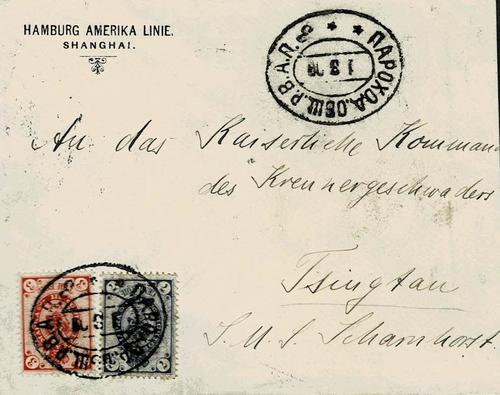 HAMBURG AMERIKA LINIE.
SHANGHAI.
ПАРОХОД.ОБЩ.Р.В.А.П.
An das Kaiserliche Komman
des Kreuzergeschwaders
Tsingtau
S.M.S. Scharnhorst.
3 3
7 7